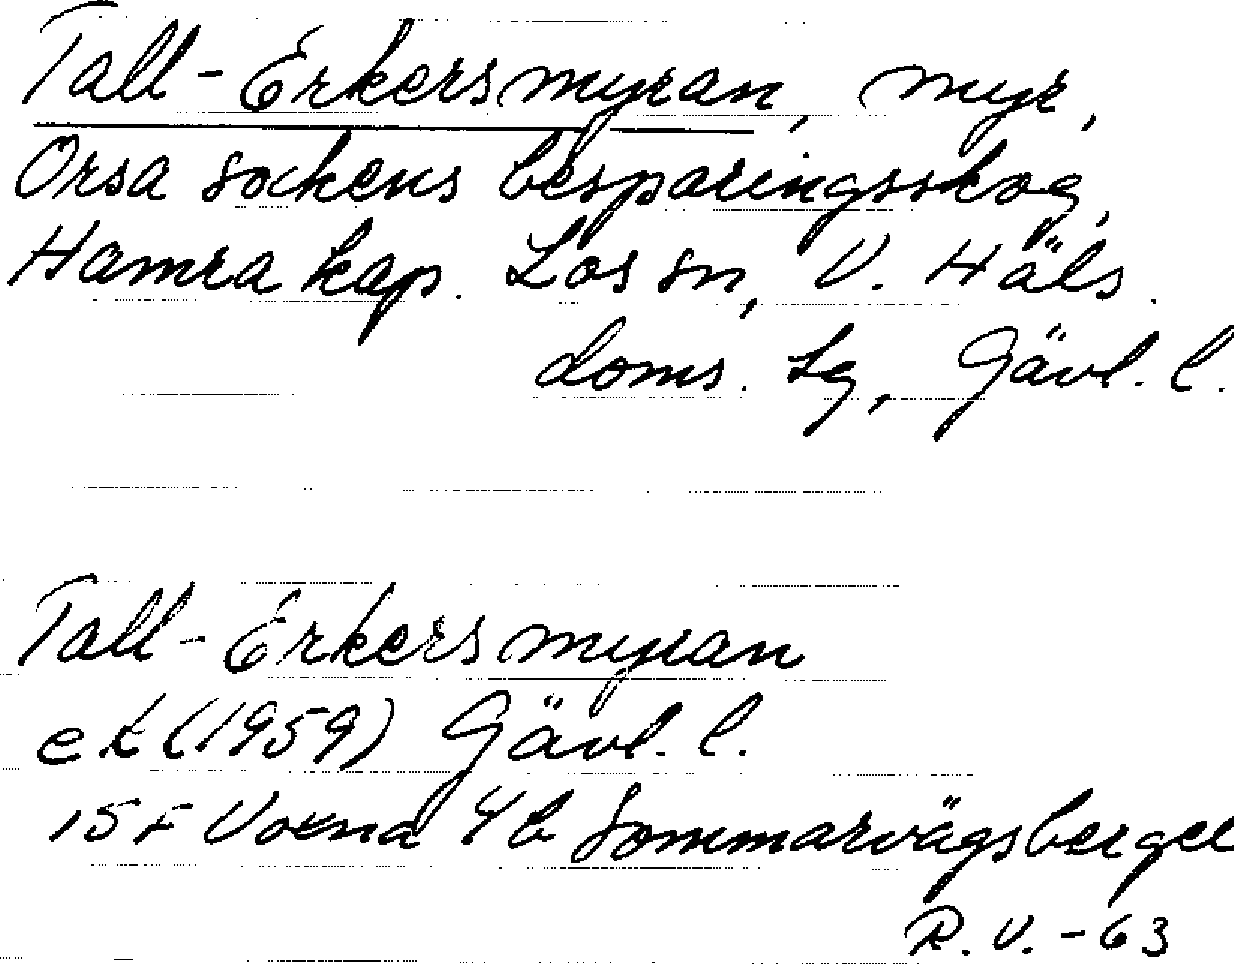 Tall-Erkersmyran, myr,
Orsa sockens besparingsskog,
Hamra kap. Los sn, V. Häls.
doms. lg, Gävl. l.
Tall-Erkersmyran
ek (1959) Gävl. l.
15 F Voxna 4b Sommarvägsberget
R.V. -63